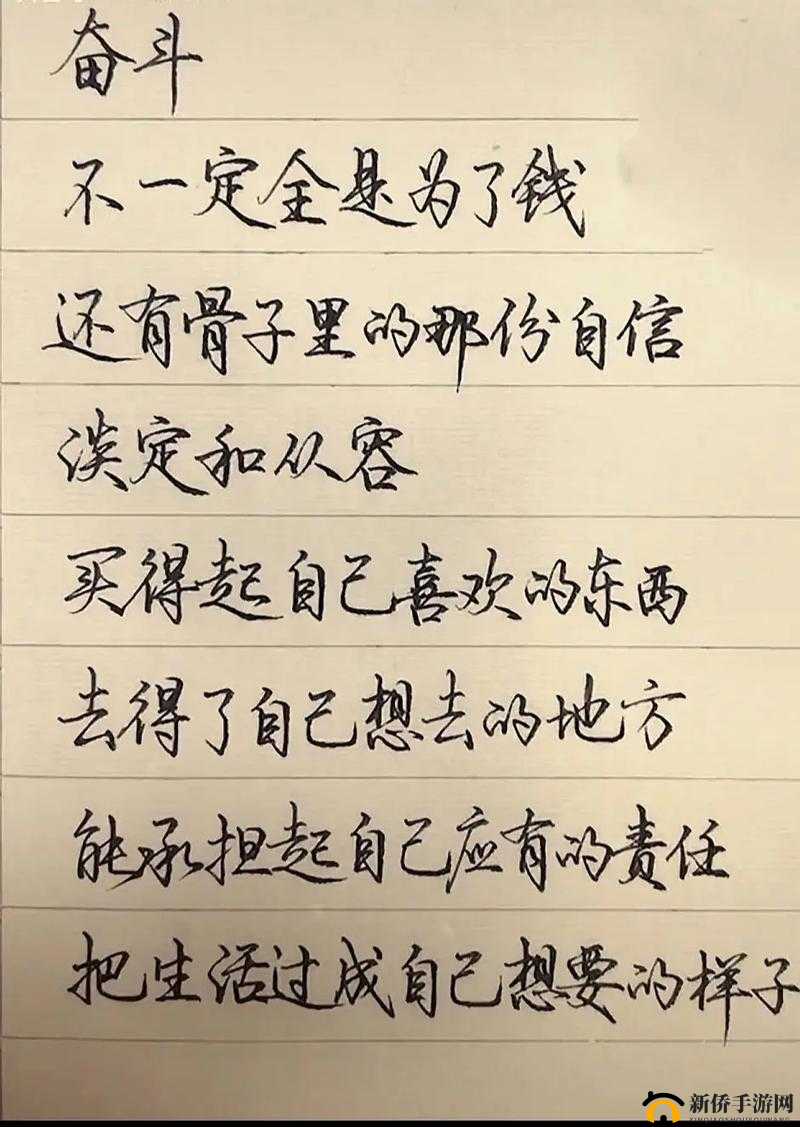 奋斗
不一定全是为了钱
还有骨子里的那份自信
淡定和从容
买得起自己喜欢的东西
去得了自己想去的地方
能承担起自己应有的责任
把生活过成自己想要的样子
新侨手游网
XINQIAOSHOUYOUWANG